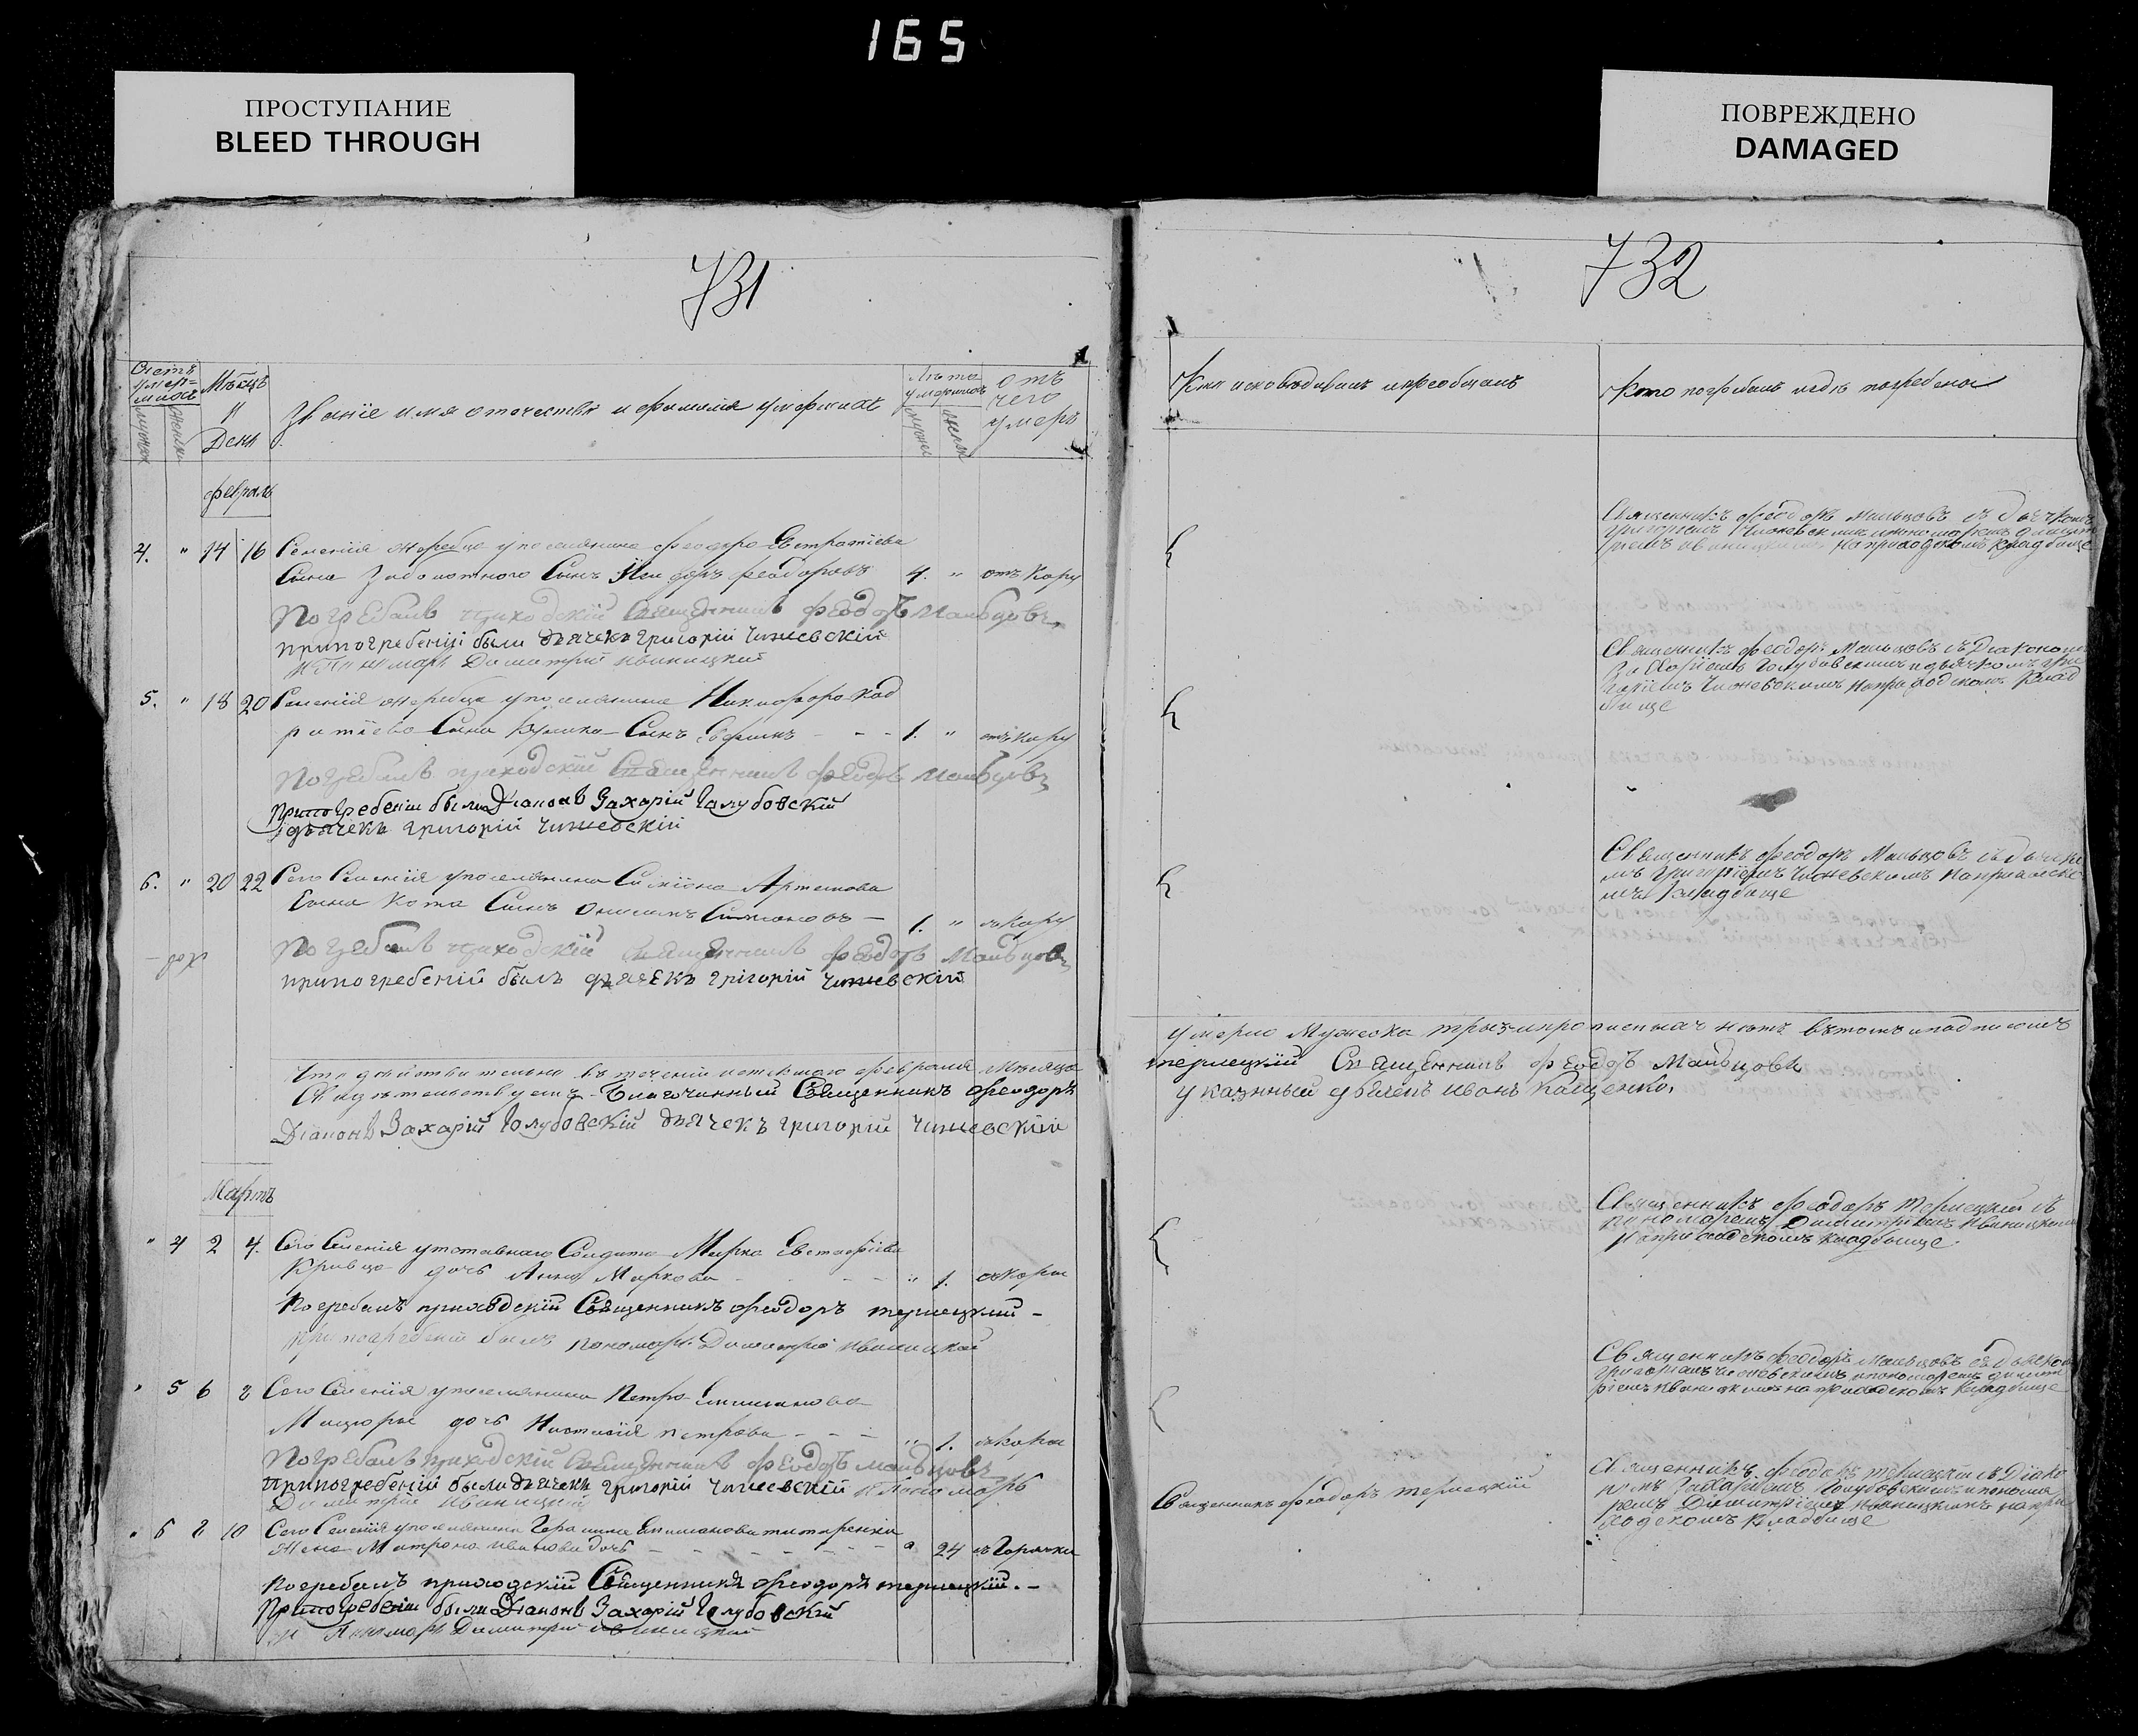 165
ПРОСТУПАНИЕ
BLEED THROUGH
ПОВРЕЖДЕНО
DAMAGED
731
Счетъ умер-шихъ
мужеска
женска
Мѣсяцъ и День
Званіе имя отечество и фамилія умершихъ
Лѣта умершихъ
мужеск
женск
отъ чего умеръ
февраль
4. " 14 16 Селенія жеребца упоселянина феодора Евстратіева
Сына Заболотного Сынъ феодоровъ 4. " отъ Кору
Погребалъ приходскій Священникъ Феодоръ Мальцовъ
припогребеніи были дьячекъ григорій Чижевскій
и Пономарь Димитрій Иваницкій
5. " 18 20 Селенія жеребца упоселянина Никифора Код
ратіева Сына Сынъ Ефимъ - - - 1. " отъ Кору
Погребалъ приходскій Священникъ Феодоръ Мальцовъ
припогребеніи были Діаконъ Захарій Голубовскій
и дьячекъ григорій Чижевскій
6. " 20 22 Сего Селенія упоселянина Симіона Артемова
Сына Кота Сынъ Онисимъ Симіоновъ — 1. " отъ Кору
Погребалъ приходскій Священникъ Феодоръ Мальцовъ
припогребеній былъ дьячекъ григорій Чижевскій
Что действительно въ теченіи истекшаго февраля месяца
Свидетельствуемъ. Благочинный Священникъ Феодоръ
Діаконъ Захарій Голубовскій дьячекъ григорій Чижевскій
Мартъ
" 4 2 4. Сего Селенія уотставнаго Солдата Марка Евстафіева
Кравца дочь Анна Маркова - - - " 1. отъ Кори
Погребалъ приходскій Священникъ Феодоръ терлецкий -
припогребеній былъ пономарь Димитрій Иваницкій
" 5 6 8 Сего Селенія упоселянина Петра Емилианова
Мацюры дочь Настасія петрова - - - " 1. отъ Кори
Погребалъ приходскій Священникъ Феодоръ мальцовъ
припогребеній были дьячекъ григорій Чижевскій и Пономарь
Димитрій Иваницкій
" 6 8 10 Сего Селенія упоселянина Герасима Емилианова титаренка
Жена Матрона Иванова дочь - - - - " 24 отъ Горячки
Погребалъ приходскій Священникъ Феодоръ терлецкій. -
припогребеніи были Діаконъ Захарій Голубовскій
и Пономарь Димитрій Иваницкій
732
Кто исповѣдывалъ и пріобщалъ
Кто погребалъ и гдѣ погребены
Священникъ Феодоръ Мальцовъ съ дьячкомъ
григоріемъ Чижевскимъ и пономаремъ димит
ріемъ Иваницкимъ На приходскомъ Кладбище
Священникъ Феодоръ Мальцовъ съ Діакономъ
Захаріемъ Голубовскимъ и дьячкомъ гри
горіемъ Чижевскимъ На приходскомъ Клад
бище
Священникъ Феодоръ Мальцовъ съ дьячко
мъ Григоріемъ Чижевскимъ На приходско
мъ Кладбище
Умерло Мужеска три въ томъ и подписомъ
терлецкій Священникъ Феодоръ Мальцовъ
указнный дьячекъ Иванъ Кащенко.
Священникъ Феодоръ Терлецкий съ
пономаремъ Димитріемъ Иваницкимъ
На приходскомъ кладбище.
Священникъ Феодоръ Мальцовъ съ дьячком
григоріемъ Чижевскимъ и пономаремъ димит
ріемъ Иваницкимъ на приходскомъ Кладбище
Священникъ Феодоръ терлецкій
Священникъ Феодоръ терлецкій съ Діако
номъ Захаріемъ Голубовскимъ и понома
ремъ Димитріемъ Иваницкимъ на при
ходскомъ Кладбище